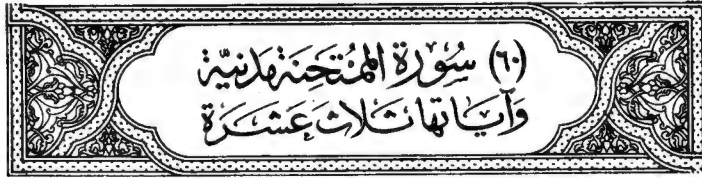 (٦٠) سُورَة المُمْتَحِنَة مَدَنيَّة
وَآيَاتهَا ثَلَاث عَشَرَة